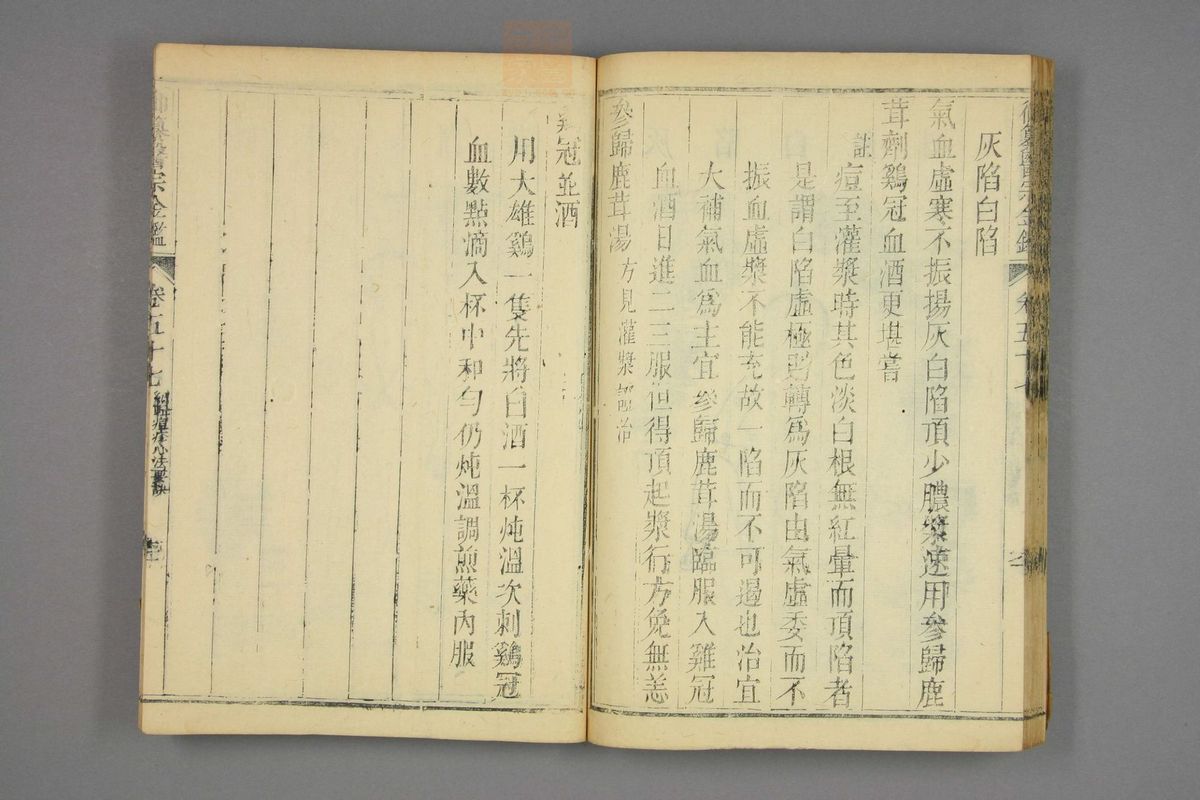 灰陷白陷
氣血虛寒不振揚灰白陷頂少膿漿速用參歸鹿
茸劑鷄冠血酒更堪嘗
註痘至灌漿時其色淡白根無紅暈而頂陷者
是謂白陷虛極則轉為灰陷由氣虛委而不
振血虛漿不能充故一陷而不可遏也治宜
大補氣血爲主宜參歸鹿茸湯臨服入雞冠
血酒日進二三服但得頂起漿行方免無恙
參歸鹿茸湯 方見灌漿認治
冠並酒
用大雄鷄一隻先將白酒一杯炖溫次刺鷄冠
血數點滴入杯中和勻仍炖溫調煎藥內服
醫宗金鑑 卷五十七 痘疹心法要訣